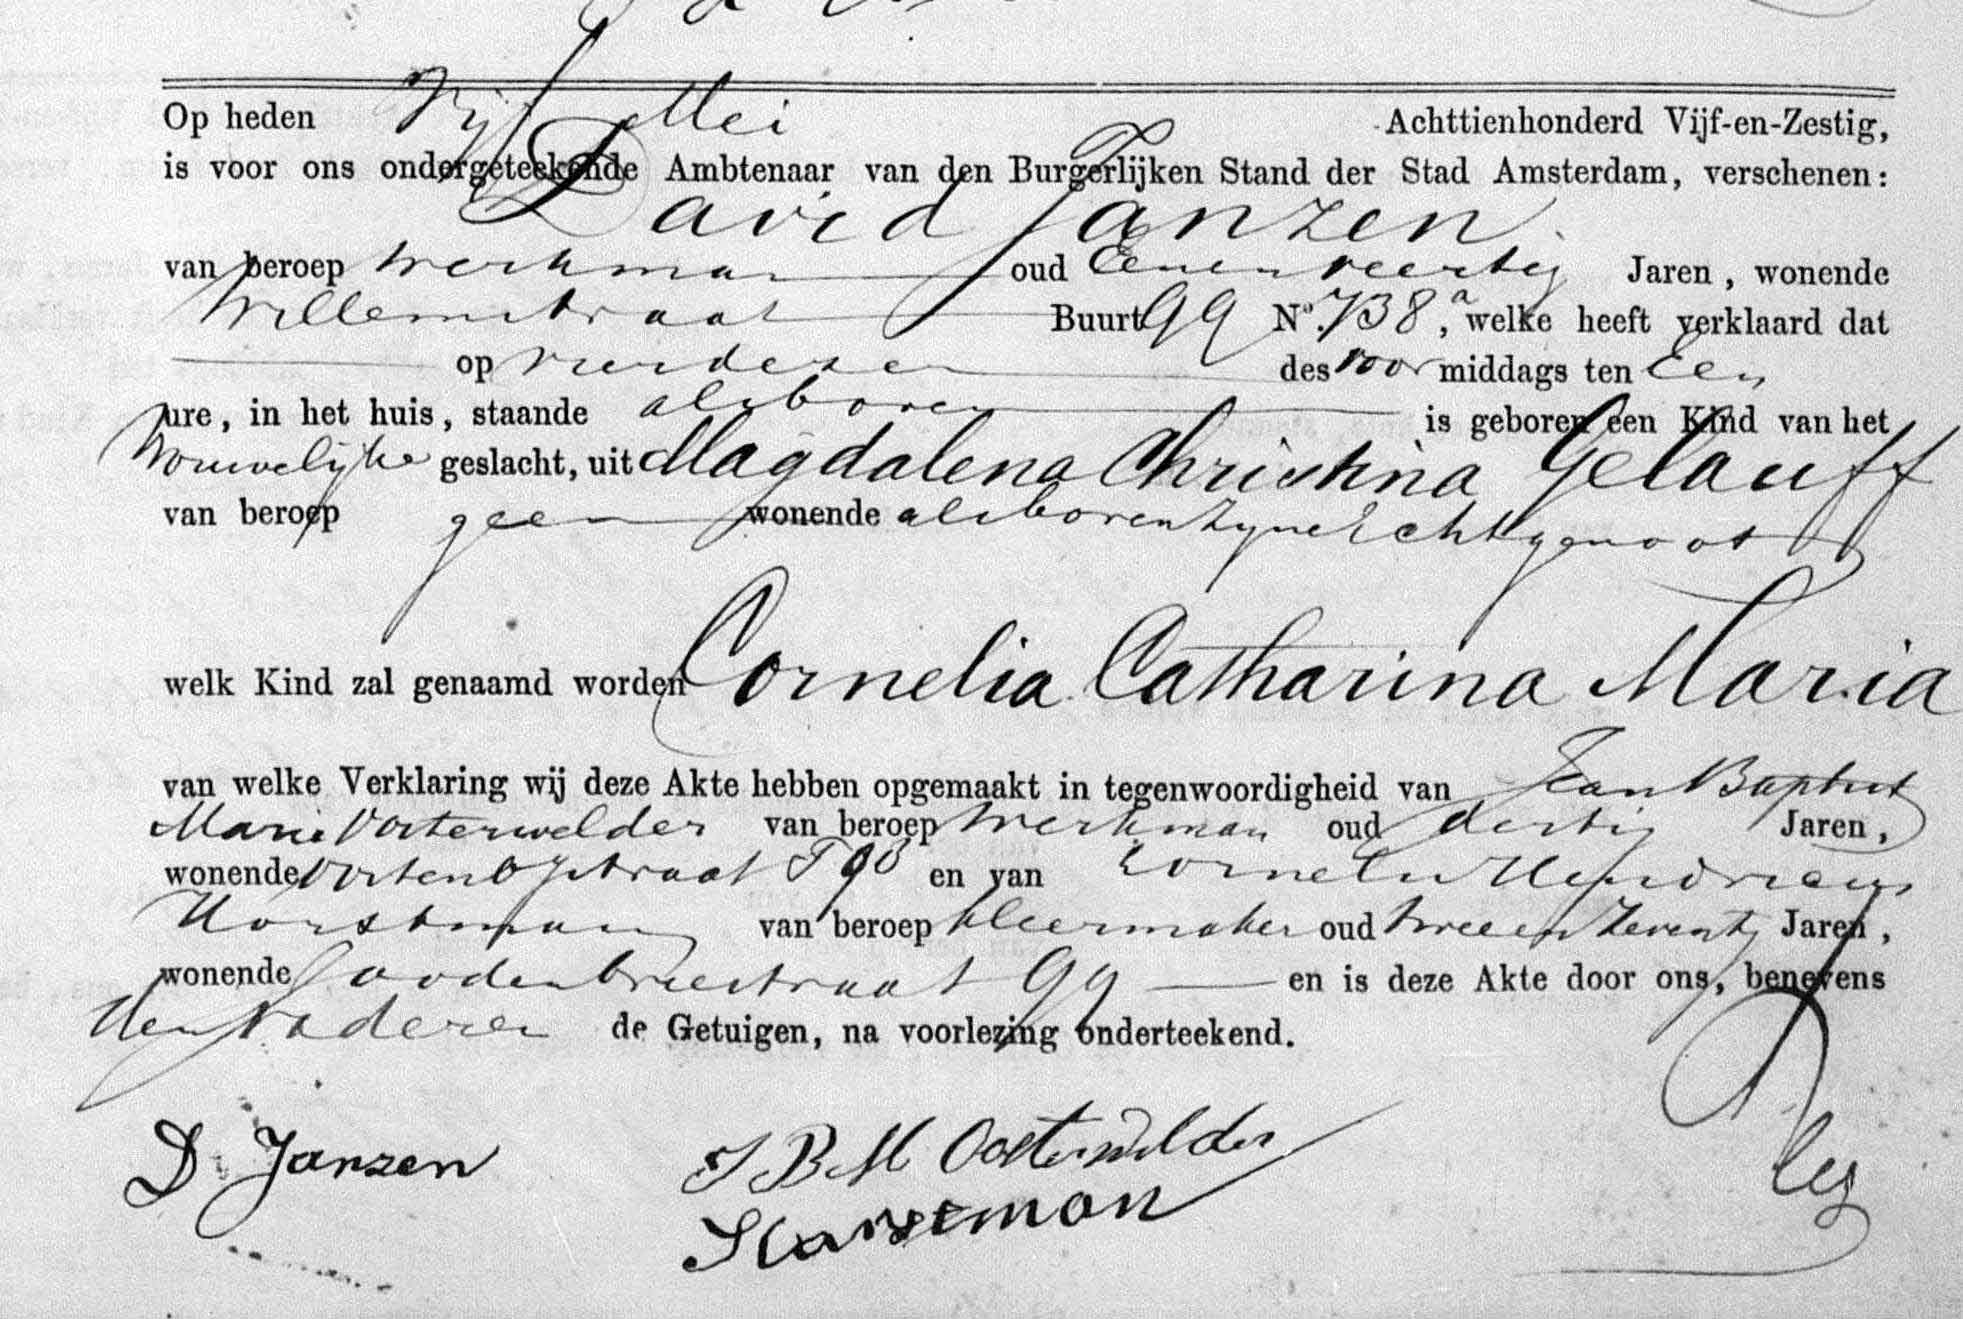 Op heden Vijf Mei Achttienhonderd Vijf-en-Zestig,
is voor ons ondergeteekende Ambtenaar van den Burgerlijken Stand der Stad Amsterdam, verschenen:
David Janzen
van beroep werkman oud Eenenveertig Jaren, wonende
Willemstraat Buurt 99 No. 738a, welke heeft verklaard dat
op vierdezer des voor middags ten Een
ure, in het huis, staande alsboven is geboren een Kind van het
Vrouwelijke geslacht, uit Magdalena Christina Gelauff
van beroep geen wonende alsboven zijne Echtgenoot
welk Kind zal genaamd worden Cornelia Catharina Maria
van welke Verklaring wij deze Akte hebben opgemaakt in tegenwoordigheid van Jean Baptist
Marie Oosterwelder van beroep werkman oud dertig Jaren,
wonende en van Cornelis Hendricus
Horstman van beroep kleermaker oud twee en zeventig Jaren,
wonende Joodenbreestraat 99 en is deze Akte door ons, benevens
den vader en de Getuigen, na voorlezing onderteekend.
D Janzen
J B M Oosterwelder
Horstman